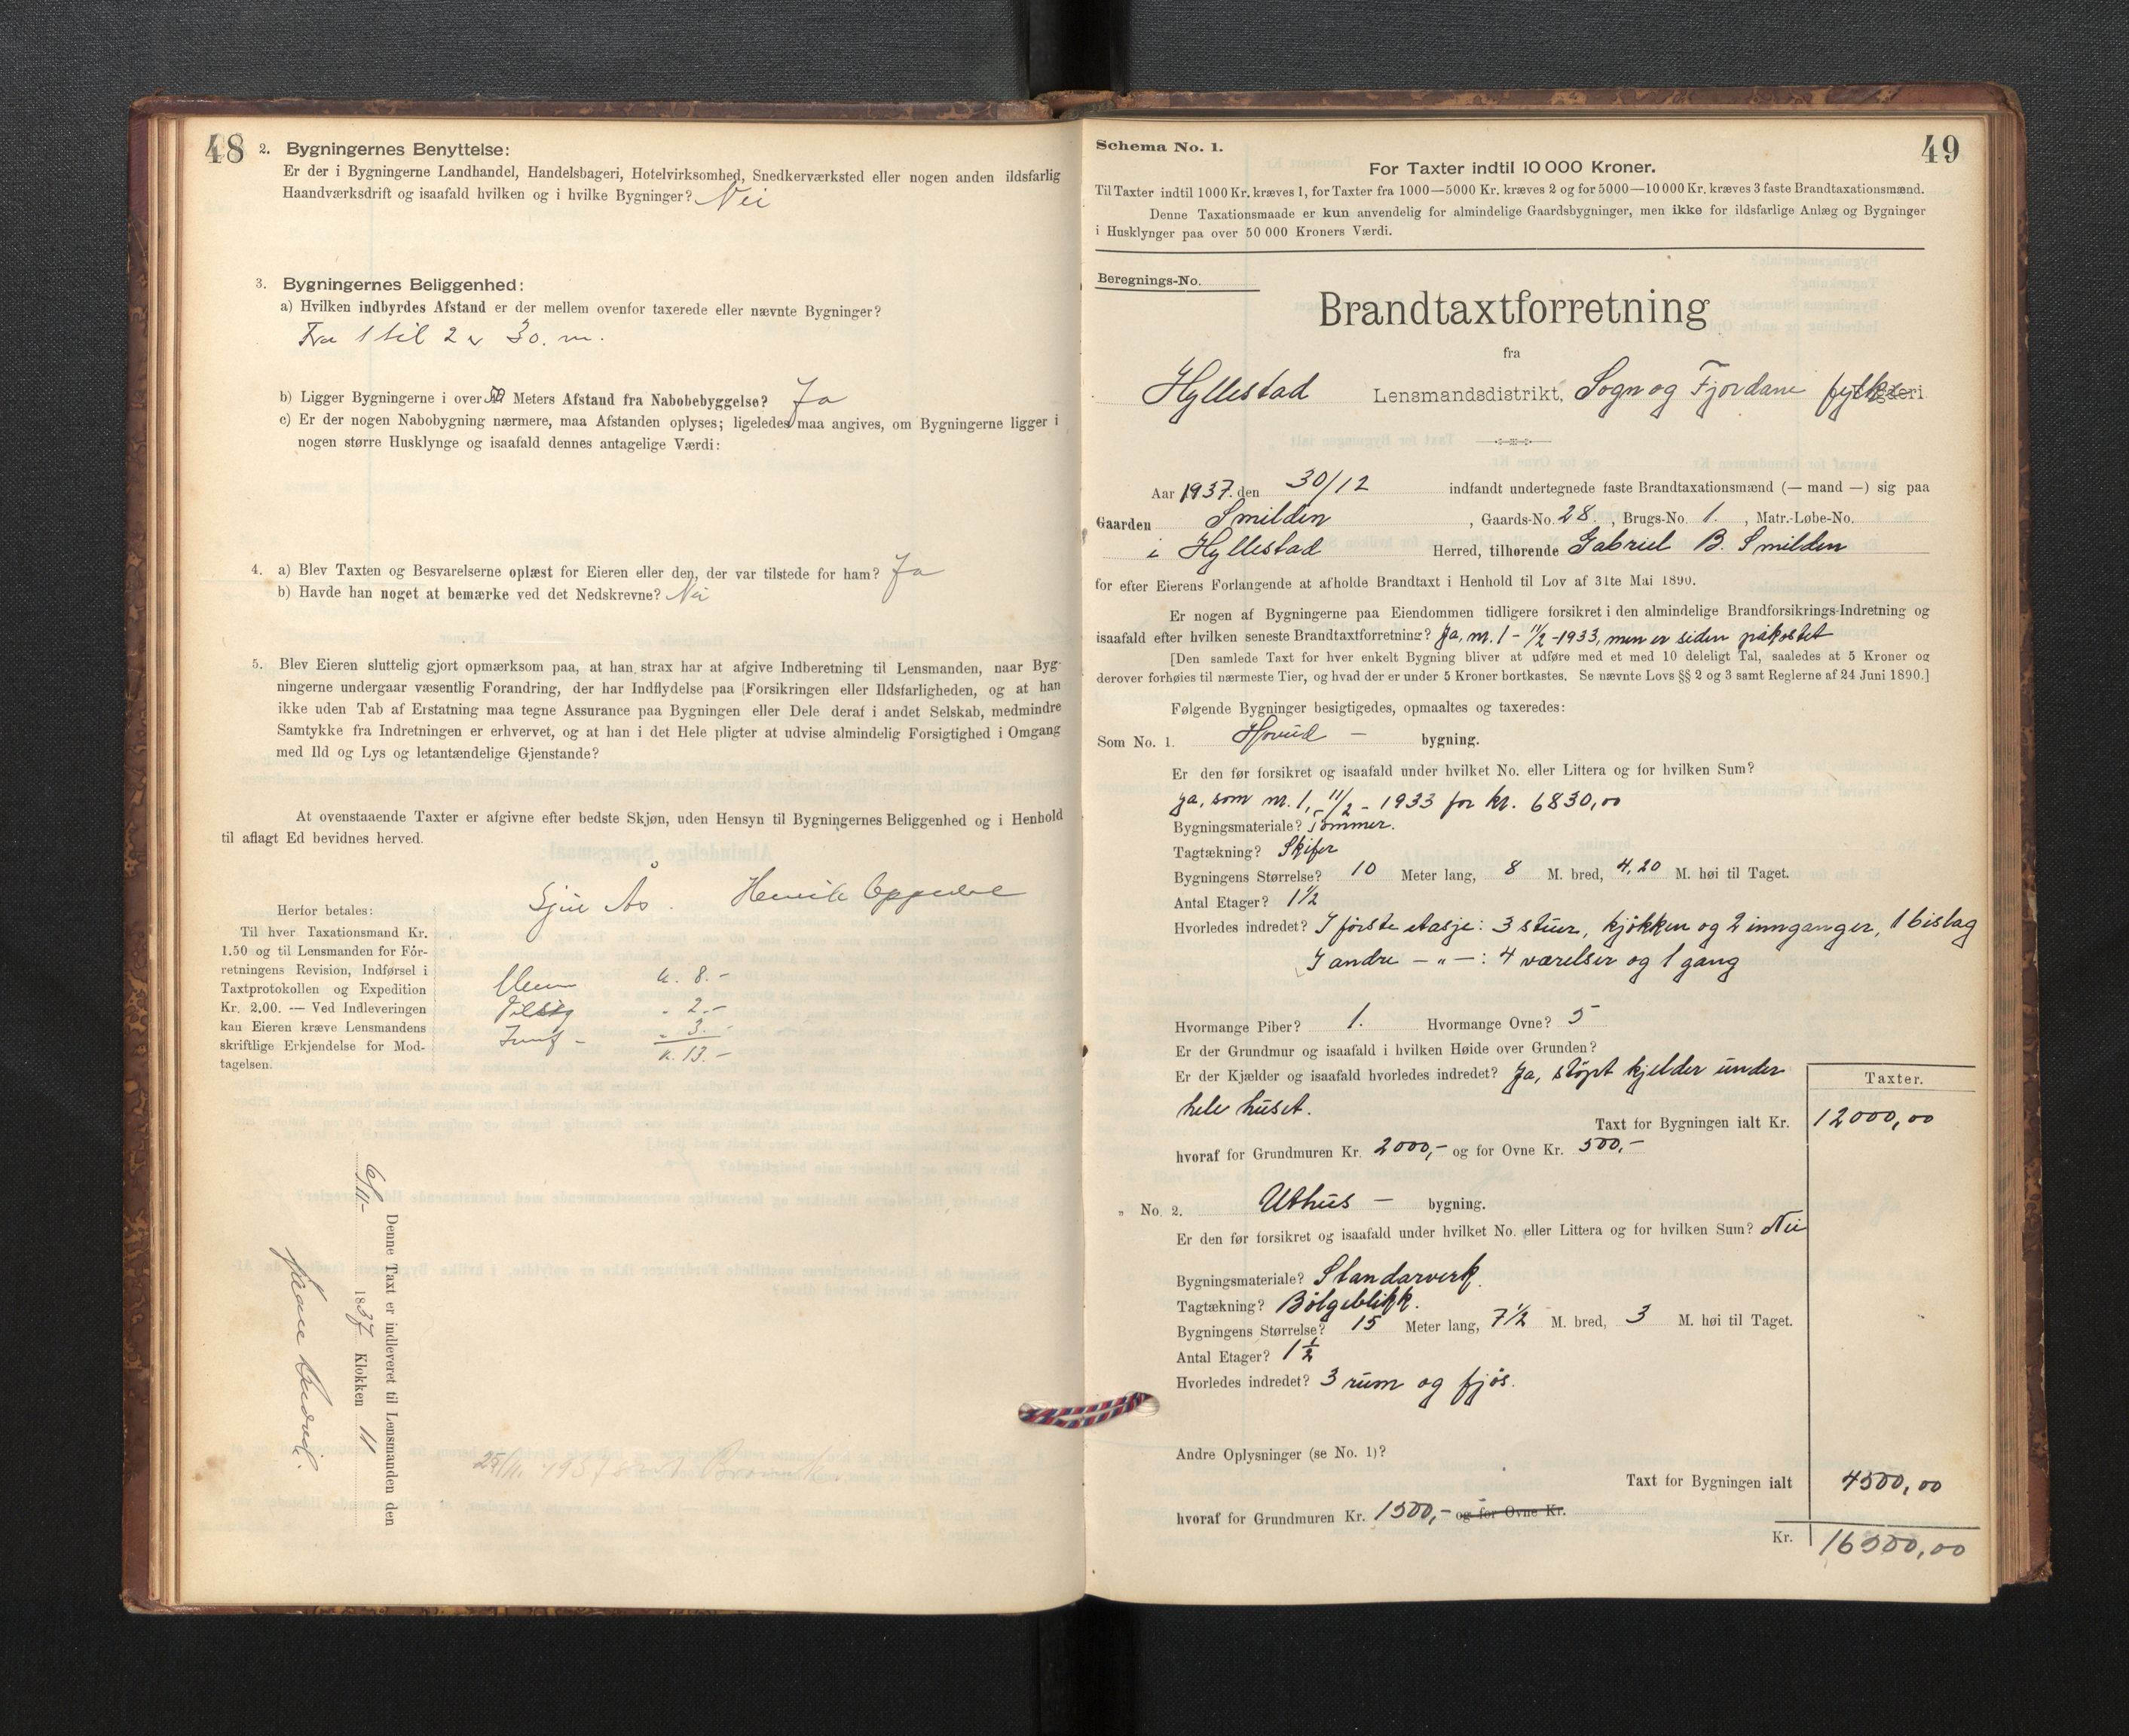 48
2. Bygningernes Benyttelse:
Er der i Bygningerne Landhandel, Handelsbageri, Hotelvirksomhed, Snedkerværksted eller nogen anden ildsfarlig
Haandværksdrift og isaafald hvilken og i hvilke Bygninger? Nei
3. Bygningernes Beliggenhed:
a) Hvilken indbyrdes Afstand er der mellem ovenfor taxerede eller nævnte Bygninger?
Fra 1 til 2 er 30. m.
b) Ligger Bygningerne i over Meters Afstand fra Nabobebyggelse? Ja
c) Er der nogen Nabobygning nærmere, maa Afstanden oplyses; ligeledes maa angives, om Bygningerne ligger i
nogen større Husklynge og isaafald dennes antagelige Værdi:
4. a) Blev Taxten og Besvarelserne oplæst for Eieren eller den, der var tilstede for ham? Ja
b) Havde han noget at bemærke ved det Nedskrevne? Nei
5. Blev Eieren sluttelig gjort opmærksom paa, at han strax har at afgive Indberetning til Lensmanden, naar Byg-
ningerne undergaar væsentlig Forandring, der har Indflydelse paa Forsikringen eller Ildsfarligheden, og at han
ikke uden Tab af Erstatning maa tegne Assurance paa Bygningen eller Dele deraf i andet Selskab, medmindre
Samtykke fra Indretningen er erhvervet, og at han i det Hele pligter at udvise almindelig Forsigtighed i Omgang
med Ild og Lys og letantændelige Gjenstande?
At ovenstaaende Taxter er afgivne efter bedste Skjøn, uden Hensyn til Bygningernes Beliggenhed og i Henhold
til aflagt Ed bevidnes herved.
Sjur Ås. Henrik Oppedal
Herfor betales:
Til hver Taxationsmand Kr.
1.50 og til Lensmanden for For-
retningens Revision, Indførsel i
Taxtprotokollen og Expedition
Kr. 2.00. — Ved Indleveringen
kan Eieren kræve Lensmandens
skriftlige Erkjendelse for Mod-
tagelsen.
k. 8.-
- 2.-
- 3.-
k. 13.-
Denne Taxt er indleveret til Lensmanden den
6/11- 1837 Klokken 11
25/11. 1937
49
Schema No. 1.
For Taxter indtil 10 000 Kroner.
Til Taxter indtil 1000 Kr. kræves 1, for Taxter fra 1000—5000 Kr. kræves 2 og for 5000—10 000 Kr. kræves 3 faste Brandtaxationsmænd.
Denne Taxationsmaade er kun anvendelig for almindelige Gaardsbygninger, men ikke for ildsfarlige Anlæg og Bygninger
i Husklynger paa over 50 000 Kroners Værdi.
Beregnings-No.
Brandtaxtforretning
fra
Hyllestad Lensmandsdistrikt, Sogn og Fjordane fylke
Aar 1937. den 30/12 indfandt undertegnede faste Brandtaxationsmænd (— mand —) sig paa
Gaarden Smilden, Gaards-No. 28., Brugs-No. 1., Matr.-Løbe-No.
i Hyllestad Herred, tilhørende Gabriel B. Smilden
for efter Eierens Forlangende at afholde Brandtaxt i Henhold til Lov af 31te Mai 1890.
Er nogen af Bygningerne paa Eiendommen tidligere forsikret i den almindelige Brandforsikrings-Indretning og
isaafald efter hvilken seneste Brandtaxtforretning? Ja, nr. 1 - 11/2 -1933, men er siden påkostet
[Den samlede Taxt for hver enkelt Bygning bliver at udføre med et med 10 deleligt Tal, saaledes at 5 Kroner og
derover forhøies til nærmeste Tier, og hvad der er under 5 Kroner bortkastes. Se nævnte Lovs §§ 2 og 3 samt Reglerne af 24 Juni 1890.]
Følgende Bygninger besigtigedes, opmaaltes og taxeredes:
Som No. 1. Hovud — bygning.
Er den før forsikret og isaafald under hvilket No. eller Littera og for hvilken Sum?
Ja, som nr. 1, - 11/2 - 1933 for kr. 6830,00
Bygningsmateriale? Tømmer.
Tagtækning? Skifer
Bygningens Størrelse? 10 Meter lang, 8 M. bred, 4,20 M. høi til Taget.
Antal Etager? 1 1/2
Hvorledes indredet? I første etasje: 3 stuer, kjøkken og 2 innganger, 1 bislag
I andre — " — : 4 værelser og 1 gang
Hvormange Piber? 1. Hvormange Ovne? 5
Er der Grundmur og isaafald i hvilken Høide over Grunden?
Er der Kjælder og isaafald hvorledes indredet? Ja, støpt kjelder under
hele huset.
Taxter.
Taxt for Bygningen ialt Kr. 12000,00
hvoraf for Grundmuren Kr. 2000,- og for Ovne Kr. 500,-
„ No. 2. Uthus — bygning.
Er den før forsikret og isaafald under hvilket No. eller Littera og for hvilken Sum? Nei
Bygningsmateriale? Standarverk.
Tagtækning? Bølgeblikk.
Bygningens Størrelse? 15 Meter lang, 7 1/2 M. bred, 3 M. høi til Taget.
Antal Etager? 1 1/2
Hvorledes indredet? 3 rum og fjøs.
Andre Oplysninger (se No. 1)?
Taxt for Bygningen ialt 4500,00
hvoraf for Grundmuren Kr. 1500,- og for Ovne Kr.
Kr. 16500,00